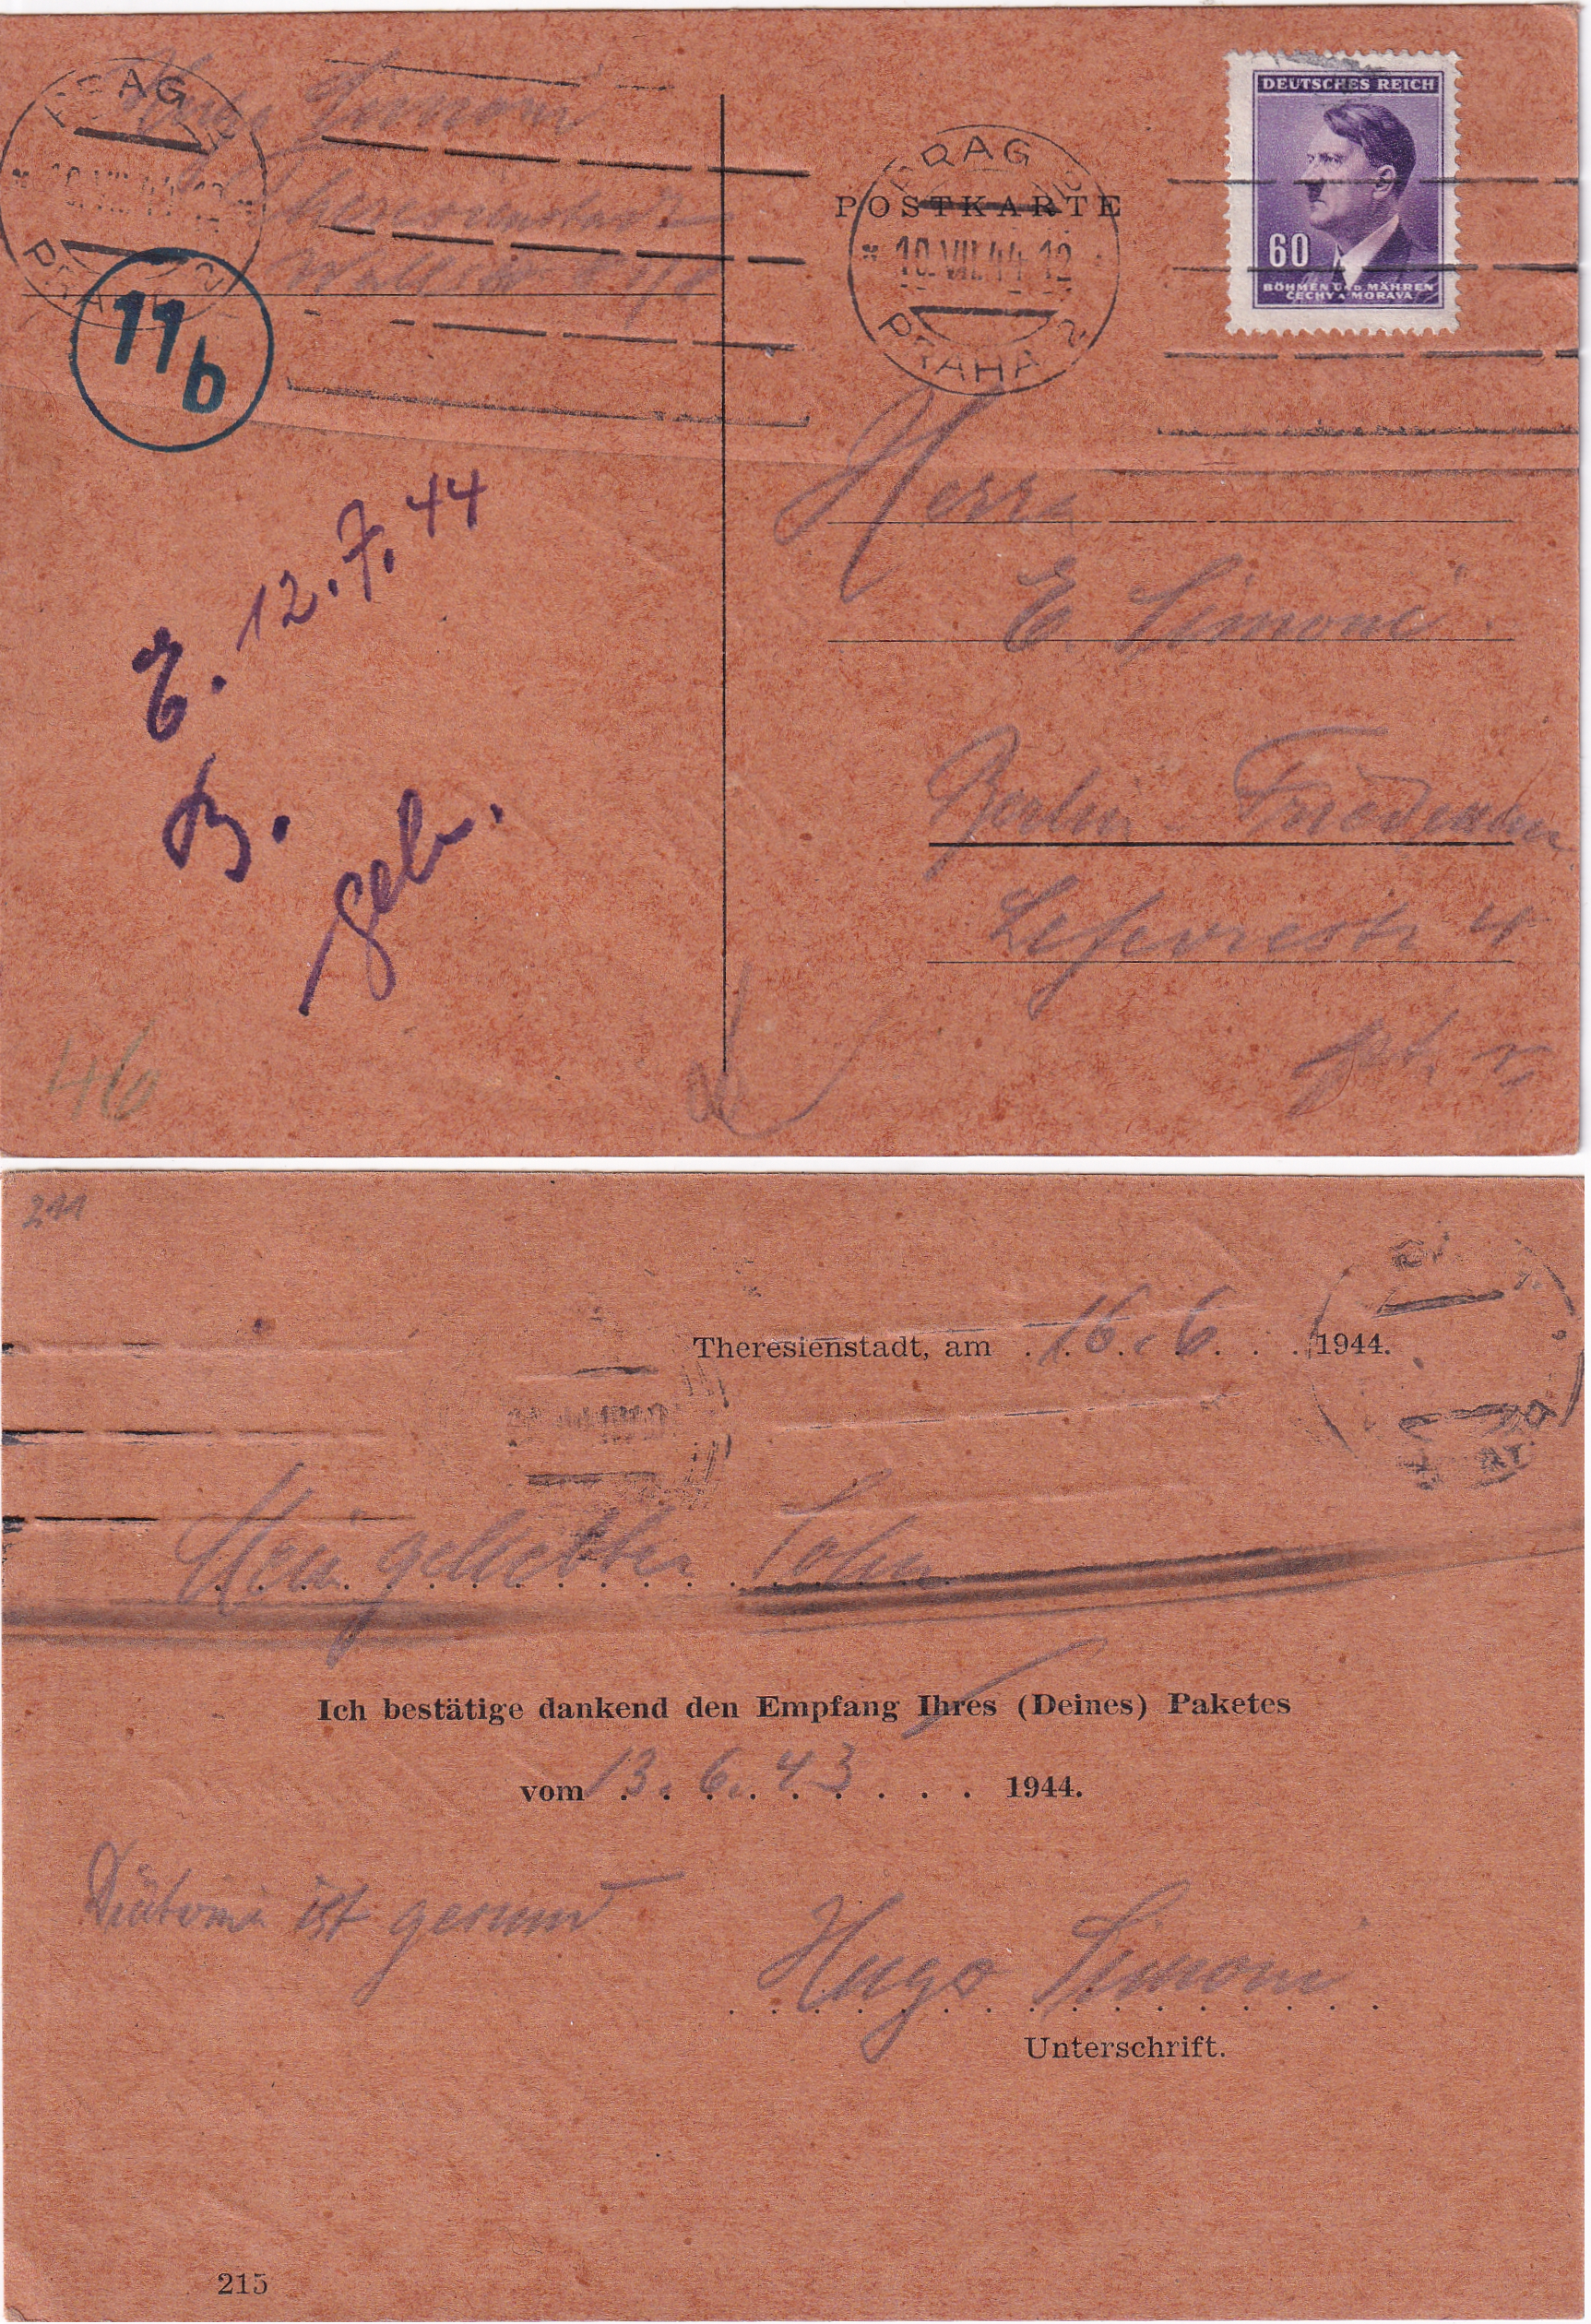 PRAG
PRAHA
Hugo Simoni
Theresienstadt
11b
POSTKARTE
PRAG
10.VII.44-12
PRAHA 2
DEUTSCHES REICH
60
BÖHMEN UND MÄHREN
ČECHY A MORAVA
Herrn
E. Simoni
Berlin-Friedenau
Lefevrestr 4
pt. r.
E. 12.7.44
B.
gebr.
46
211
Theresienstadt, am 16.6 1944.
Mein geliebter Sohn
Ich bestätige dankend den Empfang Ihres (Deines) Paketes
vom 13.6.43 1944.
ist gesund
Hugo Simoni
Unterschrift.
215